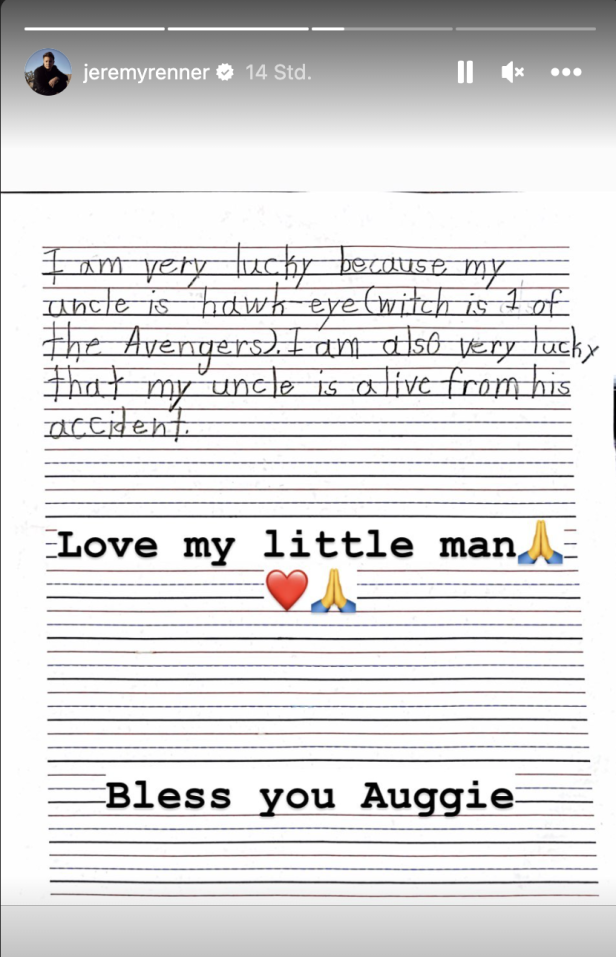 jeremyrenner 14 Std.
I am very lucky because my
uncle is hawk-eye(witch is 1 of
the Avengers). I am also very lucky
that my uncle is alive from his
accident.
Love my little man🙏
❤️🙏
Bless you Auggie